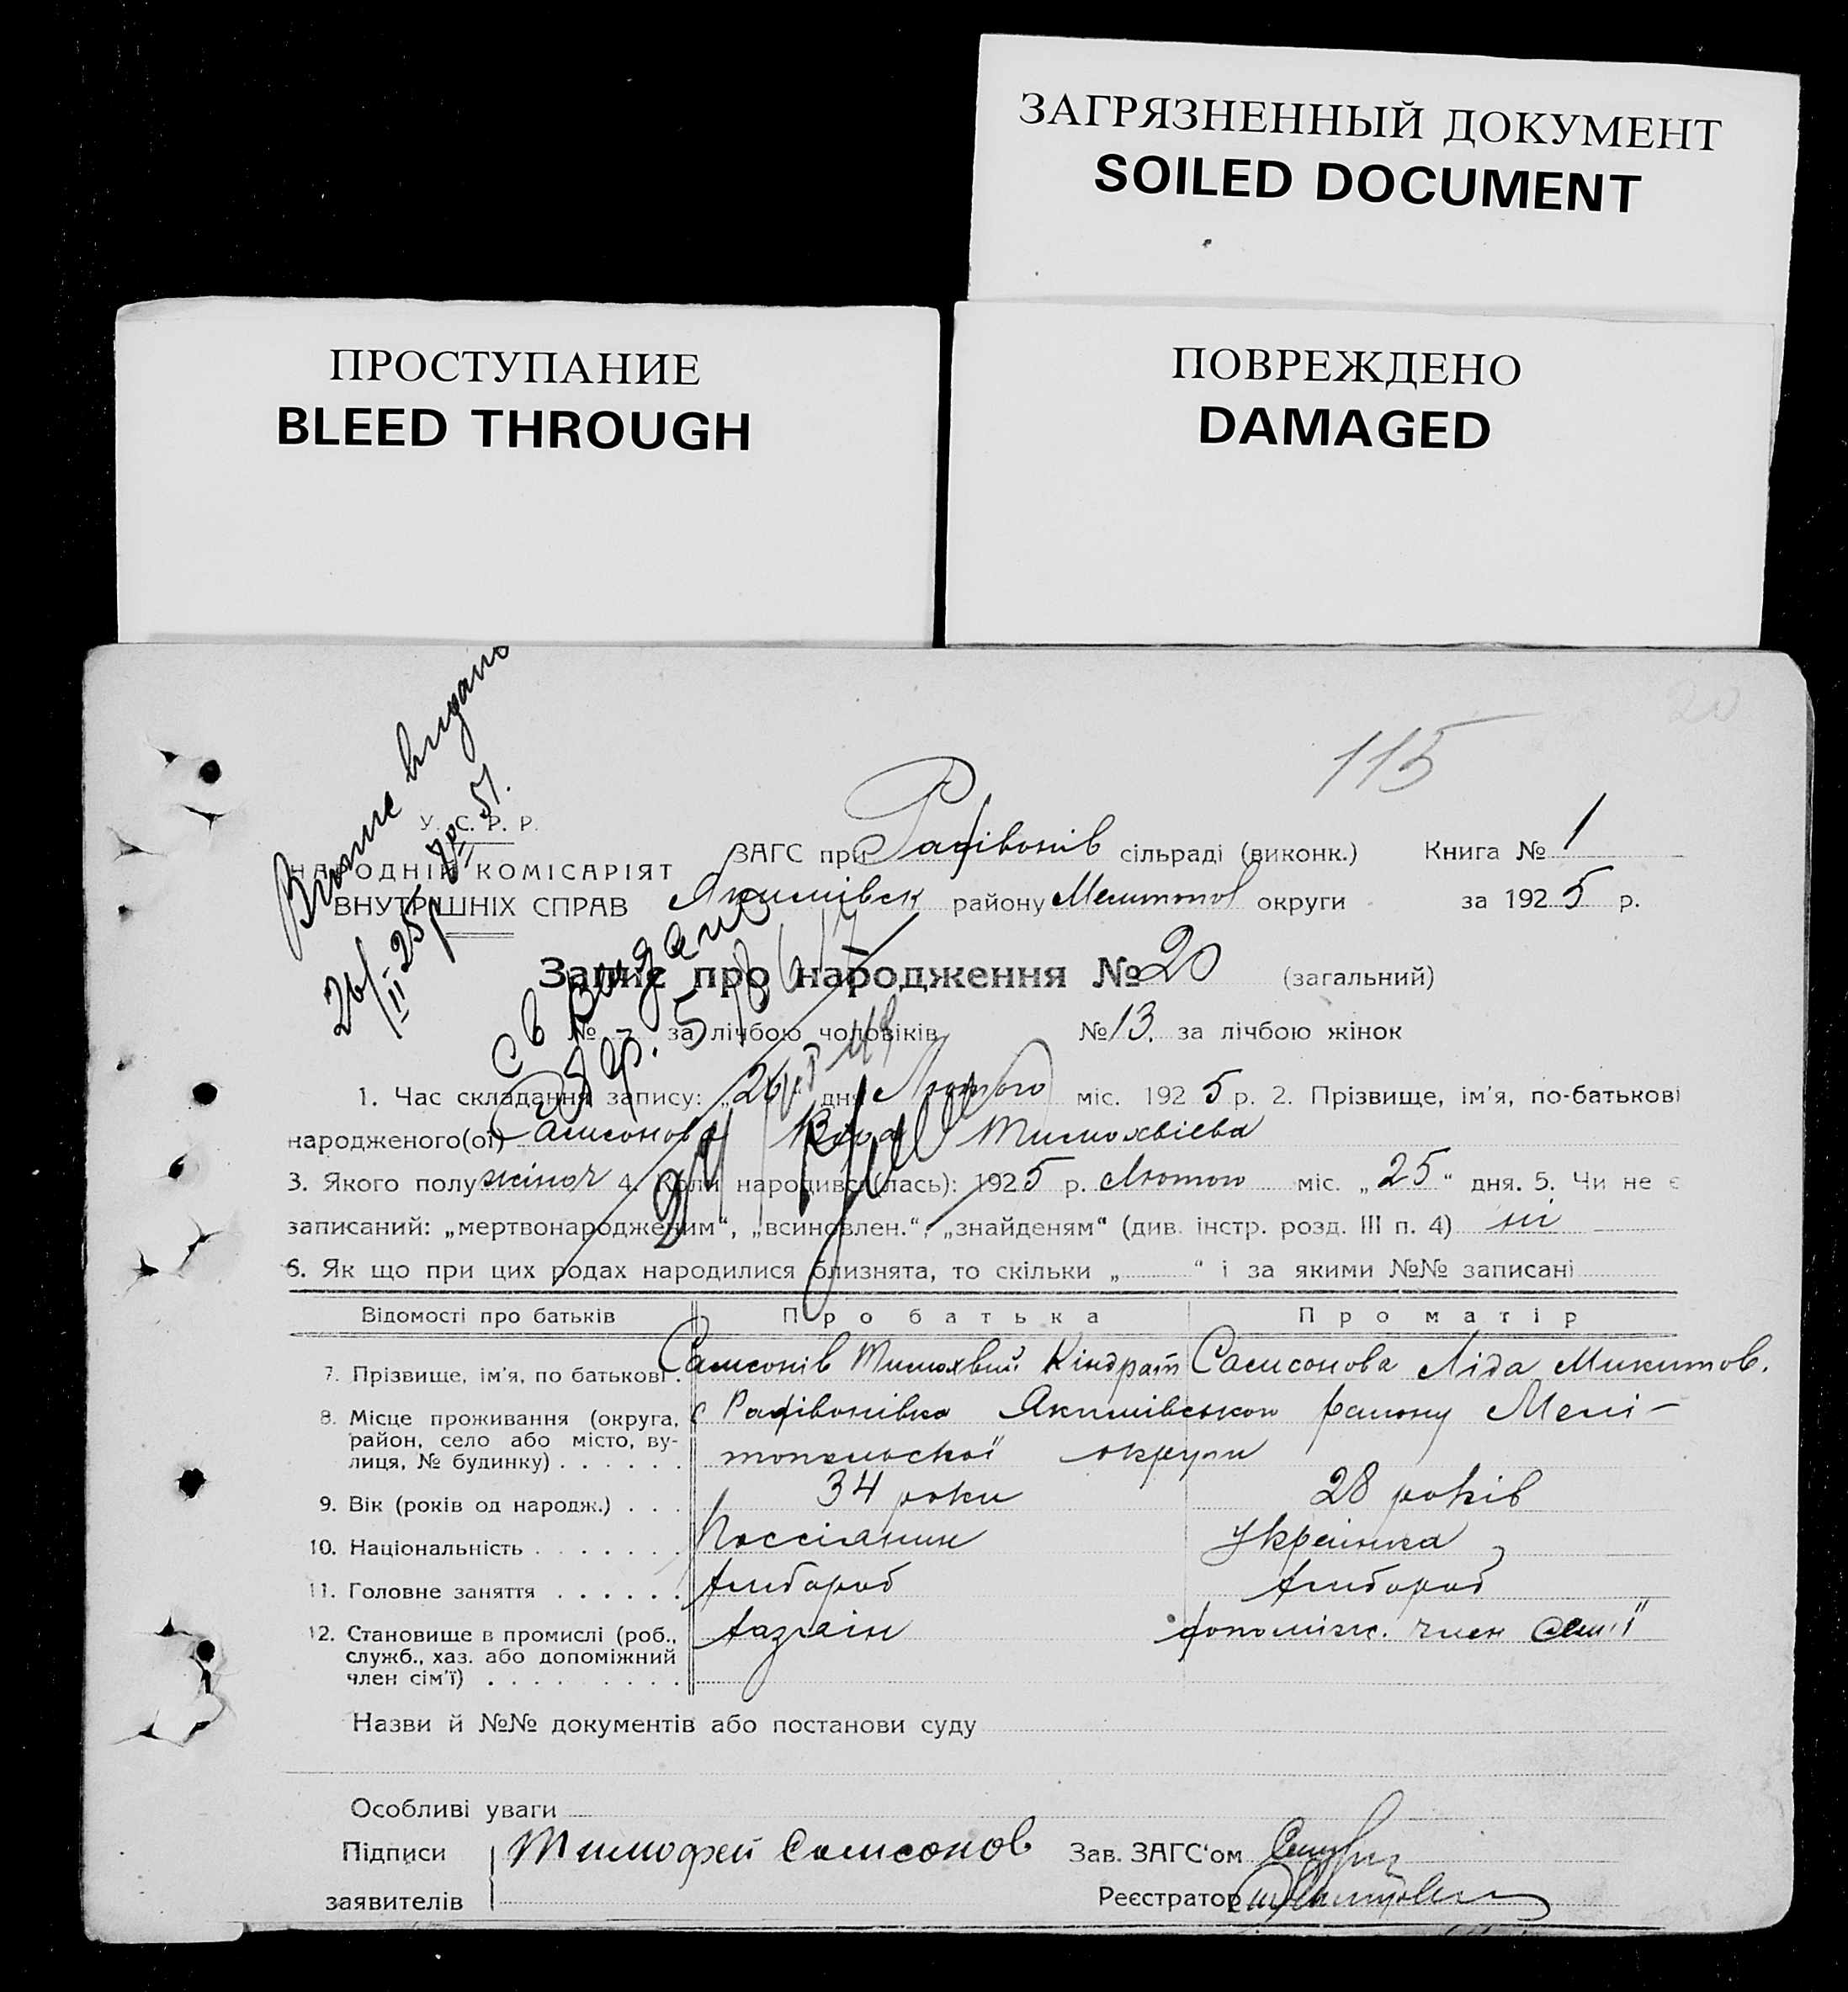 ЗАГРЯЗНЕННЫЙ ДОКУМЕНТ
SOILED DOCUMENT
ПРОСТУПАНИЕ
BLEED THROUGH
ПОВРЕЖДЕНО
DAMAGED
20
115
26/II-25 р.
У. С. Р. Р.
НАРОДНІЙ КОМІСАРІЯТ
ВНУТРІШНІХ СПРАВ
ЗАГС при Рафівонів сільраді (виконк.) Книга № 1
Якимівск району Мелитопол округи за 1925 р.
Запис про народження № 20 (загальний)
№ – за лічбою чоловіків № 13. за лічбою жінок
1. Час складання запису: „26“ дня Лютого міс. 1925 р. 2. Прізвище, ім'я, по-батькові
народженого(ої) Самсонова Віра Тимохвієва
3. Якого полу жіноч 4. Коли народився(лась): 1925 р. Лютого міс. „25“ дня. 5. Чи не є
записаний: „мертвонародженим“, „всиновлен.“, „знайденям“ (див. інстр. розд. III п. 4) ні
6. Як що при цих родах народилися близнята, то скільки „ “ і за якими №№ записані
Відомості про батьків Про батька Про матір
7. Прізвище, ім'я, по батькові . Самсонів Тимохвій Кіндрат Самсонова Ліда Микитов.
8. Місце проживання (округа, район, село або місто, вулиця, № будинку) . . . . . . с Рафівонівка Якимівського району Мелі-
топольської округи
9. Вік (років од народж.) . . . 34 роки 28 років
10. Національність . . . . . . . Россіанин Українка
11. Головне заняття . . . . . . хлібороб хлібороб
12. Становище в промислі (роб., служб., хаз. або допоміжний член сім'ї) . . . . . . . . . хазяін допоміж. член сем'ї
Назви й №№ документів або постанови суду
Особливі уваги
Підписи Тимофей Самсонов Зав. ЗАГС'ом
заявителів Реєстратор